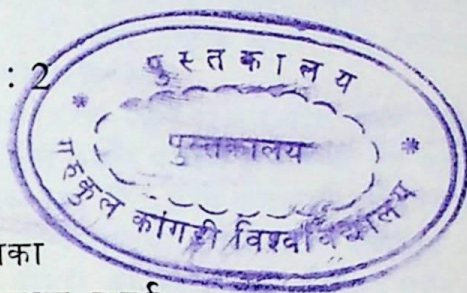 : 2
पुस्तकालय
पुस्तकालय
गुरुकुल कांगड़ी विश्वविद्यालय